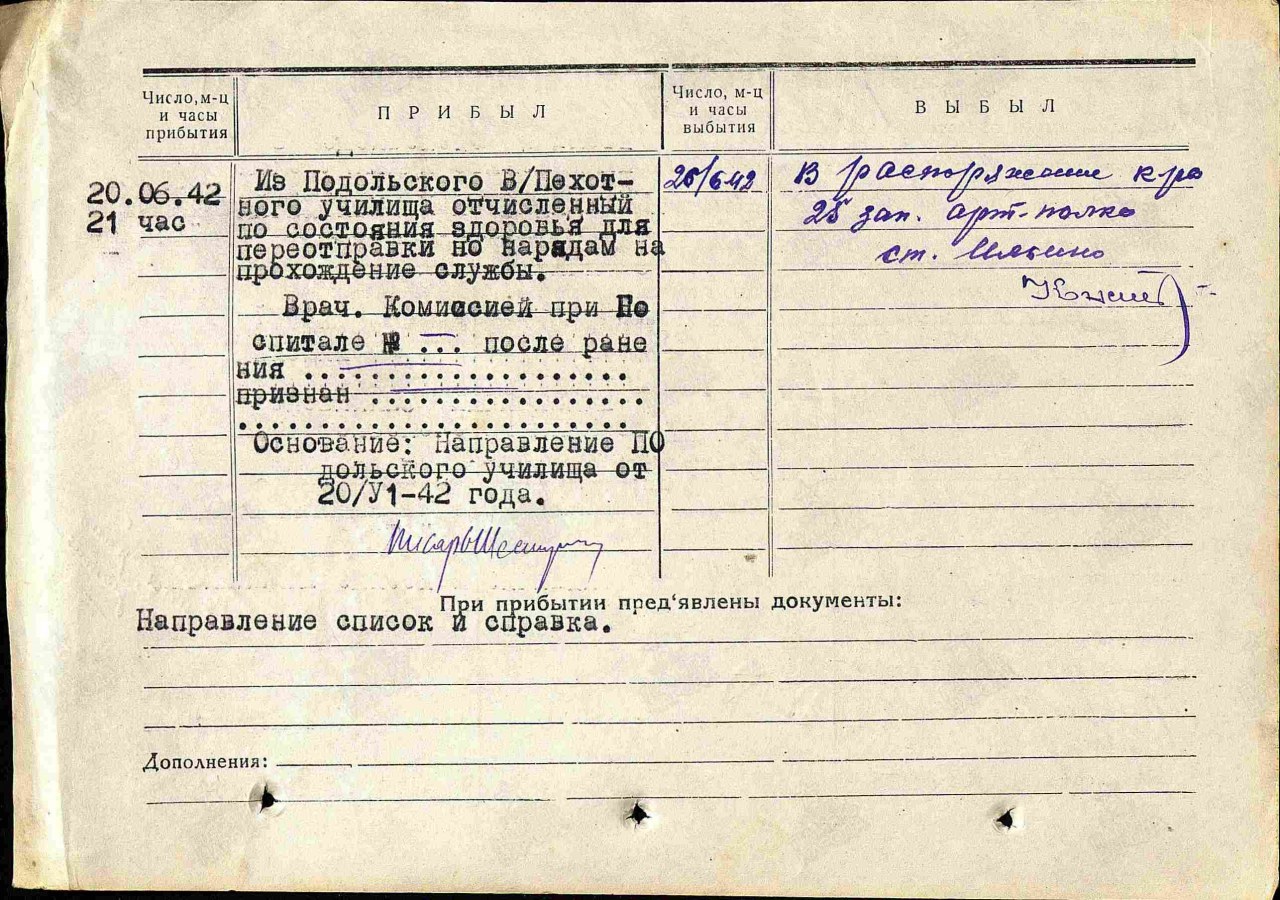 Число, м-ц
и часы
прибытия
ПРИБЫЛ
Число, м-ц
и часы
выбытия
ВЫБЫЛ
20.06.42
21 час
Из Подольского В/Пехот-
ного училища отчисленный
по состояния здоровья для
переотправки по нарядам на
прохождение службы.
Врач. Комиссией при Го
спитале № ... после ране
ния ....................
признан .................
........................
Основание: Направление ПО
дольского училища от
20/У1-42 года.
Писарь
/6 42
В распоряжение к-ра
25 зап. арт-полка
ст. Ильино
При прибытии пред'явлены документы:
Направление список и справка.
Дополнения: